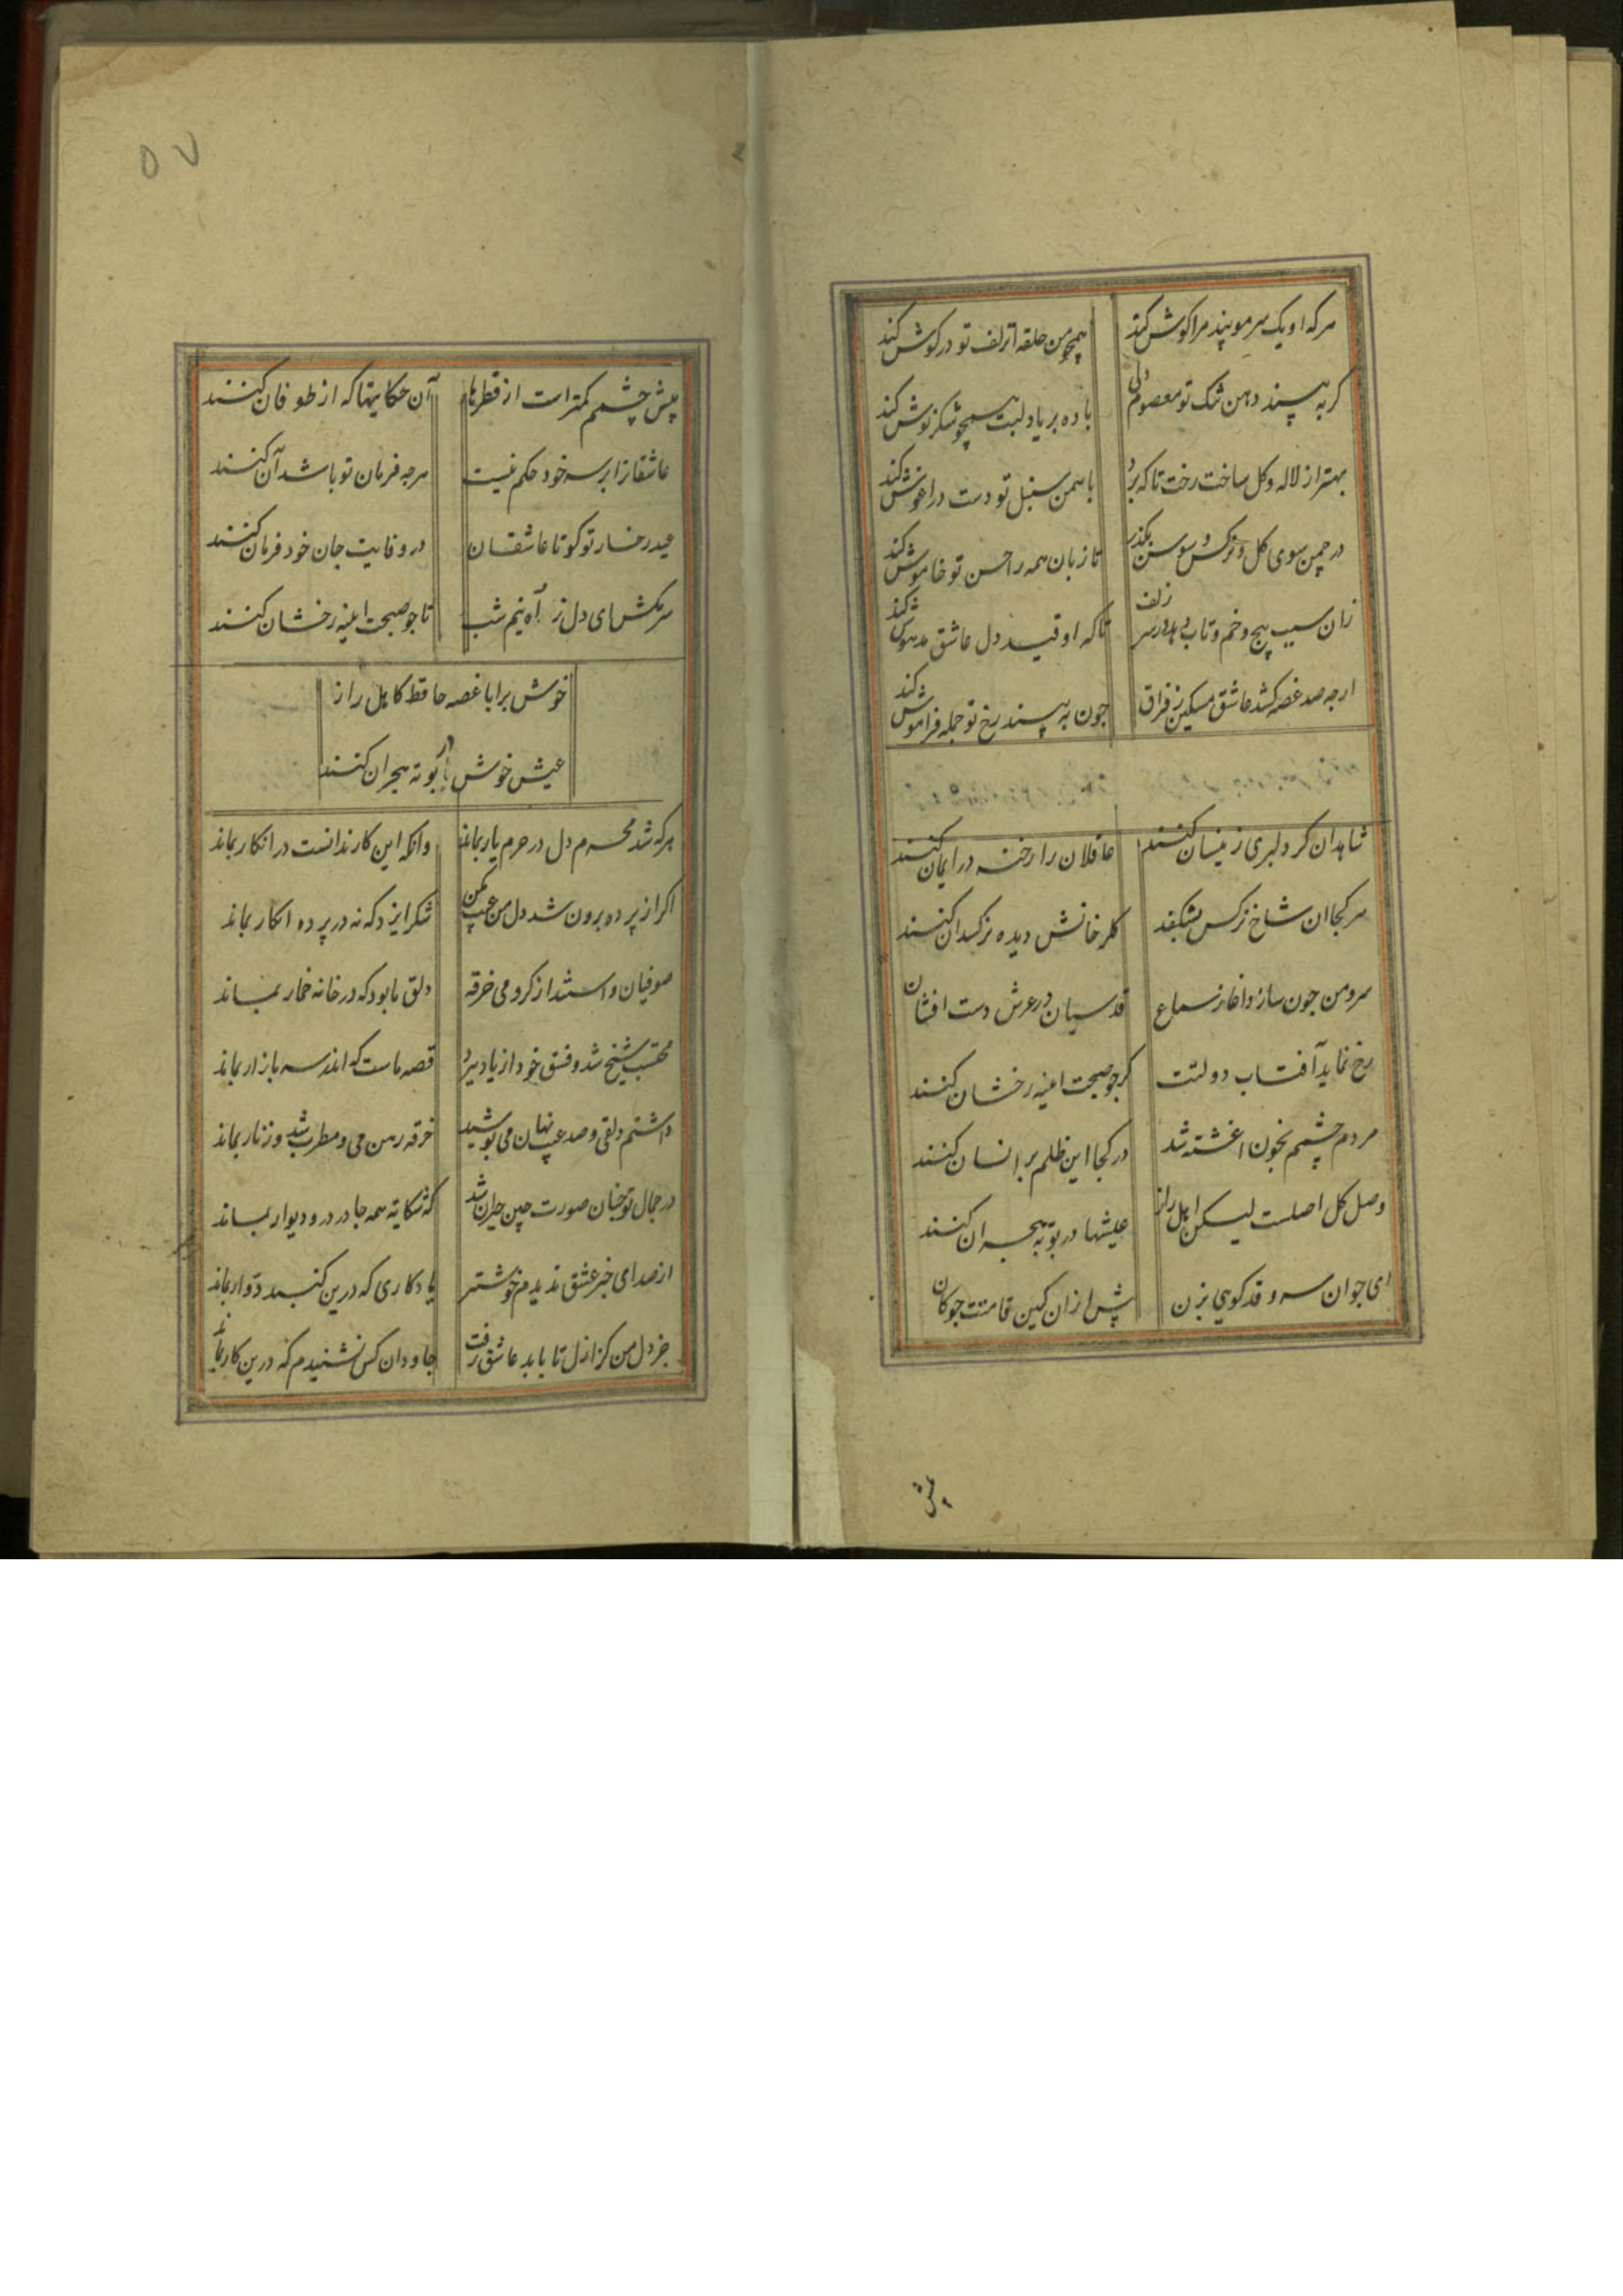 هرکه او یک سر مو پند مرا کوش کند
همچو من حلقه از زلف تو در کوش کند
کر به بیند دهن تنک تو معصوم دلی
باده بر یاد لبت همچو شکر نوش کند
بهتر از لاله و کل ساخت رخت تا که برد
با سمن سنبل تو دست در اغوش کند
در چمن سوی کل و نرکس و سوسن بکذر
تا زبان همه را حسن تو خاموش کند
زان سبب پیچ و خم و تاب دهد در سر زلف
تا که او قید دل عاشق مدهوش کند
ارچه صد غصه کشد عاشق مسکین ز فراق
چون به بیند رخ تو جمله فراموش کند
شاهدان کر دلبری زینسان کنند
عاقلان را رخنه در ایمان کنند
هر کجا ان شاخ نرکس بشکفد
کلرخانش دیده نرکسدان کنند
سرو من چون سازد اغاز سماع
قدسیان در عرش دست افشان
رخ نماید آفتاب دولتت
کر چو صبحت اینه رخشان کنند
مردم چشمم بخون اغشته شد
در کجا این ظلم بر انسان کنند
وصل کل اصلست لیکن اهل راز
عیشها در بوته هجران کنند
ای جوان سرو قد کویی بزن
پیش از ان کین قامتت چوکان
پیش
۵۷
پیش چشمم کمتر است از قطرها
آن حکایتها که از طوفان کنند
عاشقانرا بر سر خود حکم نیست
هرچه فرمان تو باشد آن کنند
عید رخسار تو کو تا عاشقان
در وفایت جان خود قربان کنند
سر مکش ای دل ز آه نیم شب
تا چو صبحت اینه رخشان کنند
خوش برا با غصه حافظ کاهل راز
عیش خوش در بوته هجران کنند
هرکه شد محرم دل در حرم یار بماند
وانکه این کار ندانست در انکار بماند
اکر از پرده برون شد دل من عیب مکن
شکر ایزد که نه در پرده انکار بماند
صوفیان واستدند از کرو می خرقه
دلق ما بود که در خانه خمار بماند
محتسب شیخ شد و فسق خود از یاد ببرد
قصه ماست که اندر سر بازار بماند
داشتم دلقی و صد عیب نهان می پوشید
خرقه رهن می و مطرب شد و زنار بماند
در جمال تو چنان صورت چین حیران شد
که حکایه همه جا در در و دیوار بماند
از صدای خبر عشق ندیدم خوشتر
یادکاری که درین کنبد دوار بماند
جز دل من کز ازل تا بابد عاشق رفت
جاودان کس نشنیدم که درین کار بماند